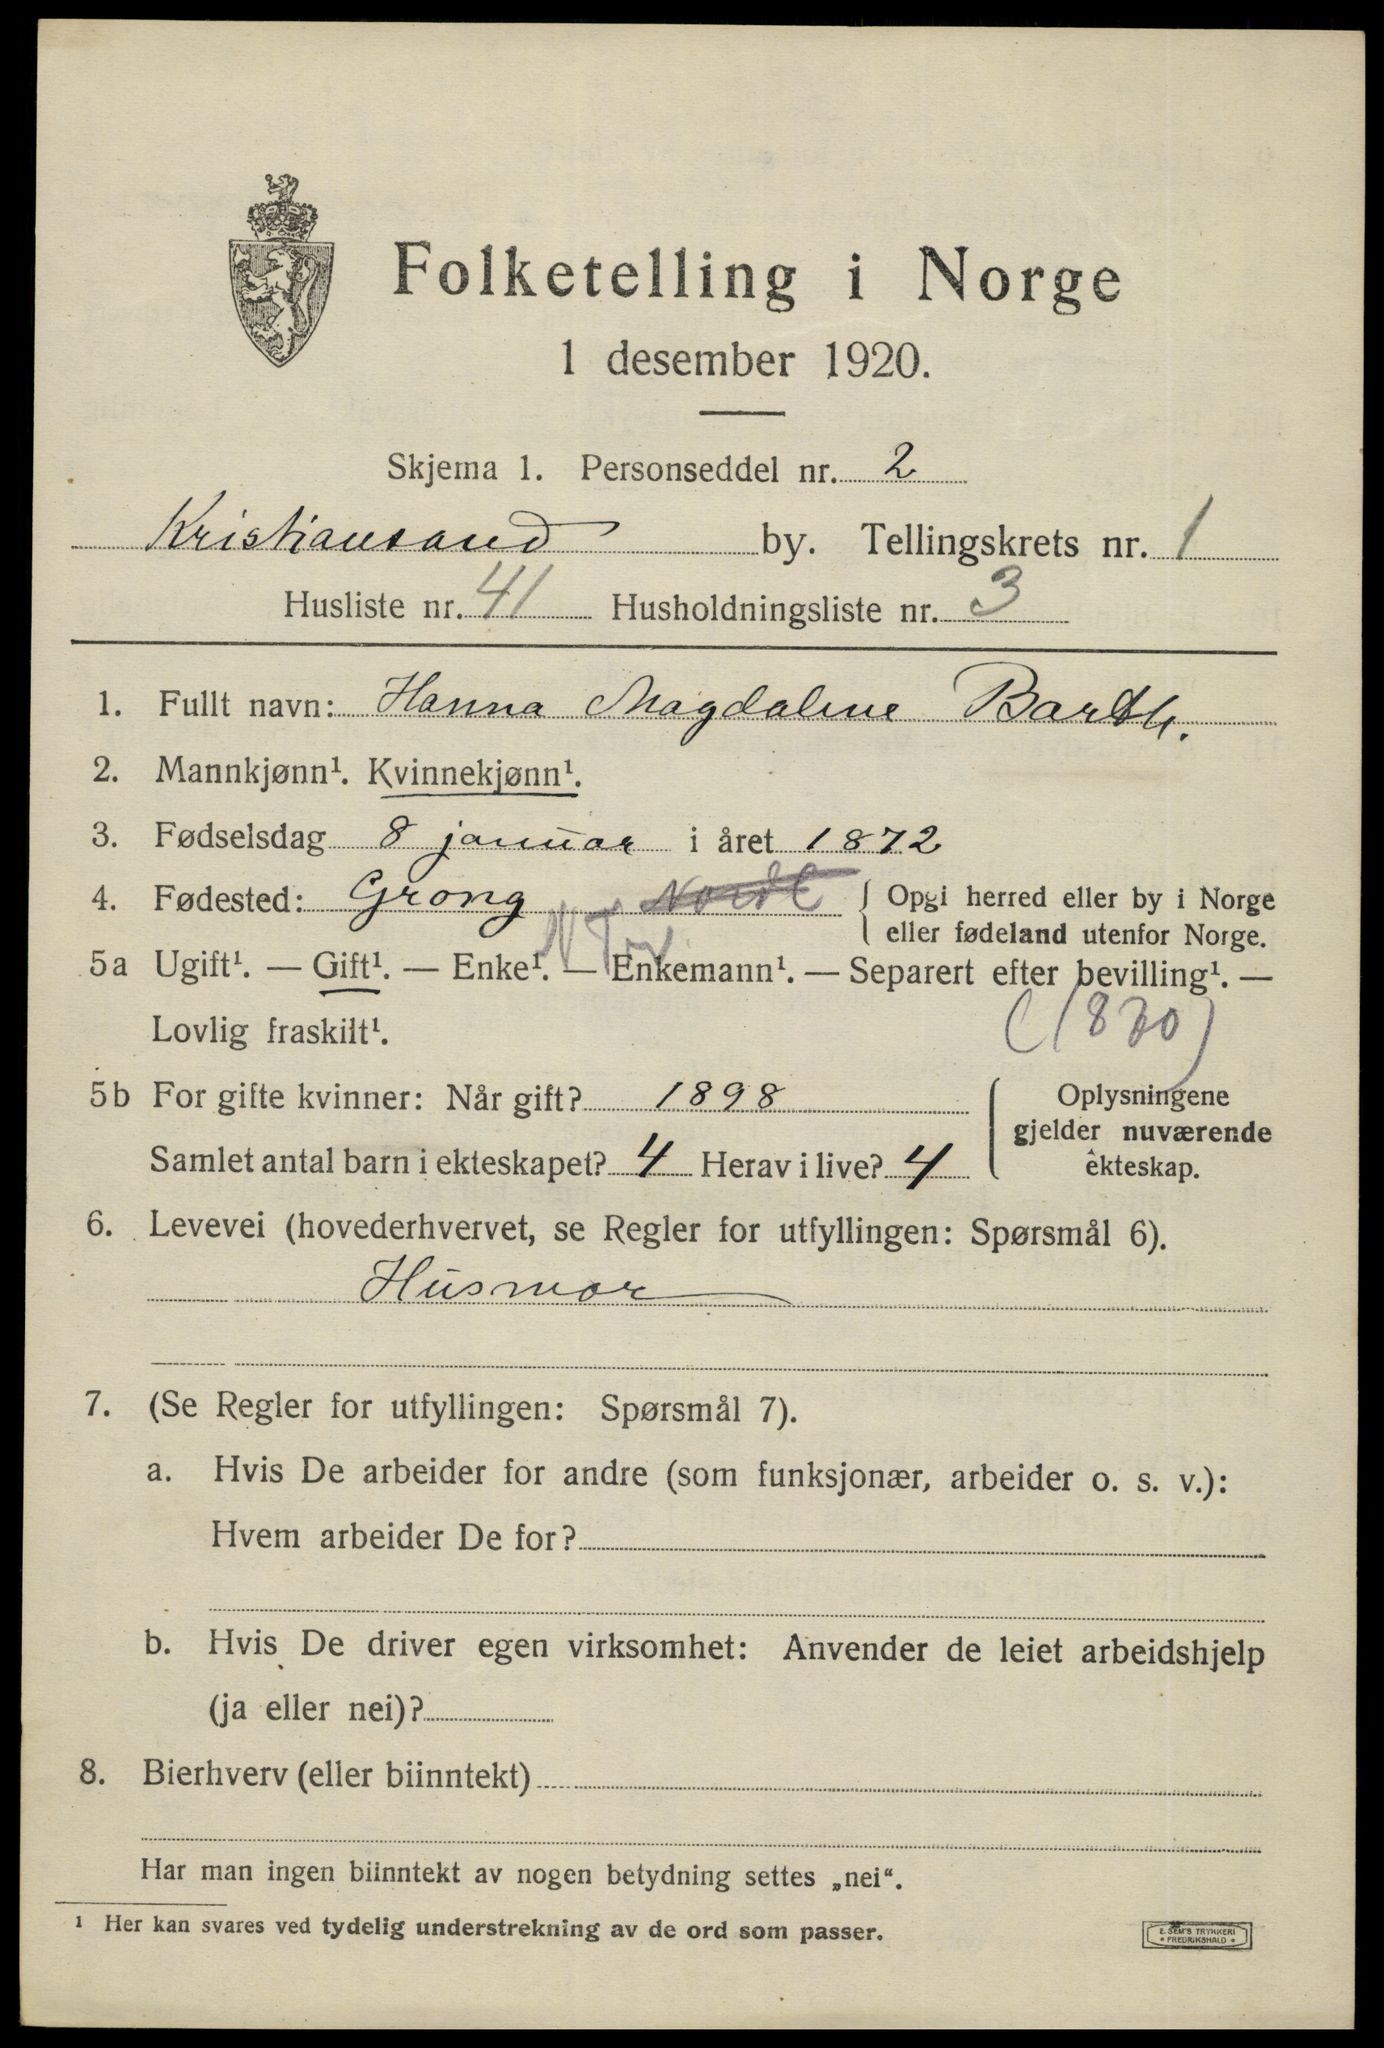 Folketelling i Norge
1 desember 1920.
Skjema 1. Personseddel nr. 2
Kristiansand by. Tellingskrets nr. 1
Husliste nr. 41 Husholdningsliste nr. 3
1. Fullt navn: Hanna Magdalene Barth.
2. Mannkjønn¹. Kvinnekjønn¹.
3. Fødselsdag 8 januar i året 1872
4. Fødested: Grong Nordl { Opgi herred eller by i Norge
eller fødeland utenfor Norge.
N Tr
5a Ugift¹. — Gift¹. — Enke¹. — Enkemann¹. — Separert efter bevilling¹. —
Lovlig fraskilt¹.
5b For gifte kvinner: Når gift? 1898 { Oplysningene
gjelder nuværende
Samlet antal barn i ekteskapet? 4 Herav i live? 4 ekteskap.
6. Levevei (hovederhvervet, se Regler for utfyllingen: Spørsmål 6).
Husmor
7. (Se Regler for utfyllingen: Spørsmål 7).
a. Hvis De arbeider for andre (som funksjonær, arbeider o. s. v.):
Hvem arbeider De for?
b. Hvis De driver egen virksomhet: Anvender de leiet arbeidshjelp
(ja eller nei)?
8. Bierhverv (eller biinntekt)
Har man ingen biinntekt av nogen betydning settes „nei“.
¹ Her kan svares ved tydelig understrekning av de ord som passer.
E. SEM'S TRYKKERI
• FREDRIKSHALD •